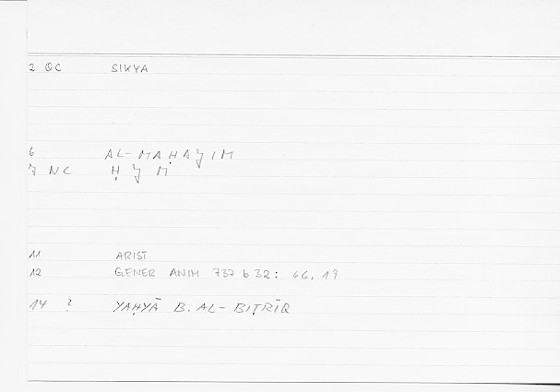 2 QC SIKYA
6 AL-MAḤAǦIM
7 NC Ḥ Ǧ M
11 ARIST
12 GENER ANIM 737 b 32: 66, 19
14 ? YAḤYĀ B. AL-BIṬRĪQ